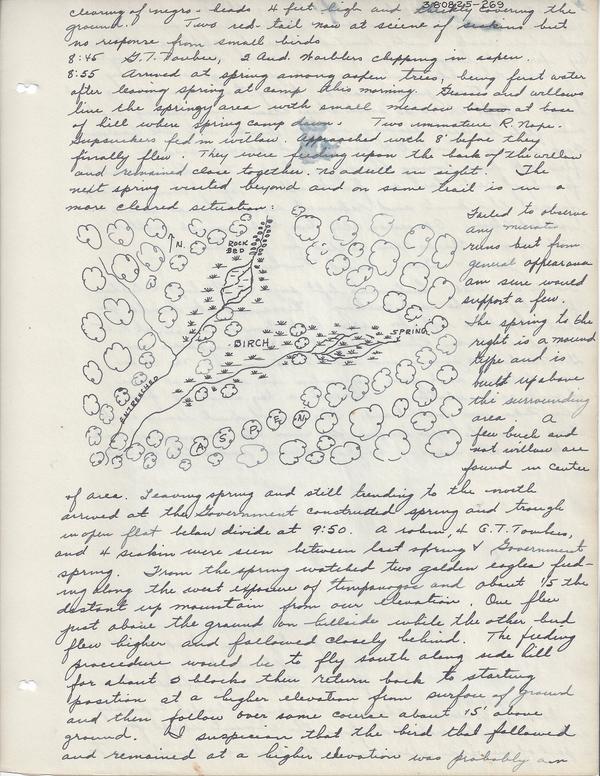 380825-269
clearing of negro-heads 4 feet high and covering the
ground. Two red-tail now at sciene of siskins but
no response from small birds
8:45 G.T. Towhee, 2 Aud. Warblers chepping in aspen.
8:55 Arrived at spring among aspen trees, being first water
after leaving spring at camp this morning. Grasses and willows
line the springy area with small meadow below at base
of hill where spring camp down. Two immature R. Nape.
Sapsuckers fed in willow. Approached with 8' before they
finally flew. They were feeding upon the bark of the willow
and remained close together. no adult in sight. The
next spring visited beyond and on same trail is in a
more cleared situation:
N.
ROCK
BED
BIRCH
SPRING
ENTRENCHED
ASPEN
Failed to observe
any microtus
runs but from
general appearance
am sure would
support a few.
The spring to the
right is a mound
type and is
built up above
the surrounding
area. A
few birch and
not willow are
found in center
of area. Leaving spring and still tending to the north
arrived at the Government constructed spring and trough
in open flat below divide at 9:50. A robin, 4 G.T. Towhees,
and 4 siskin were seen between last spring & Government
spring. From the spring watched two golden eagles feed-
ing along the west exposure of Timpanogos and about 1/5 the
distant up mountain from our elevation. One flew
just above the ground on hillside while the other bird
flew higher and followed closely behind. The feeding
proceedure would be to fly south along side hill
for about blocks then return back to starting
position at a higher elevation from surface of ground
and then follow over same course about 15' above
ground. I suspecion that the bird that followed
and remained at a higher elevation was probably an